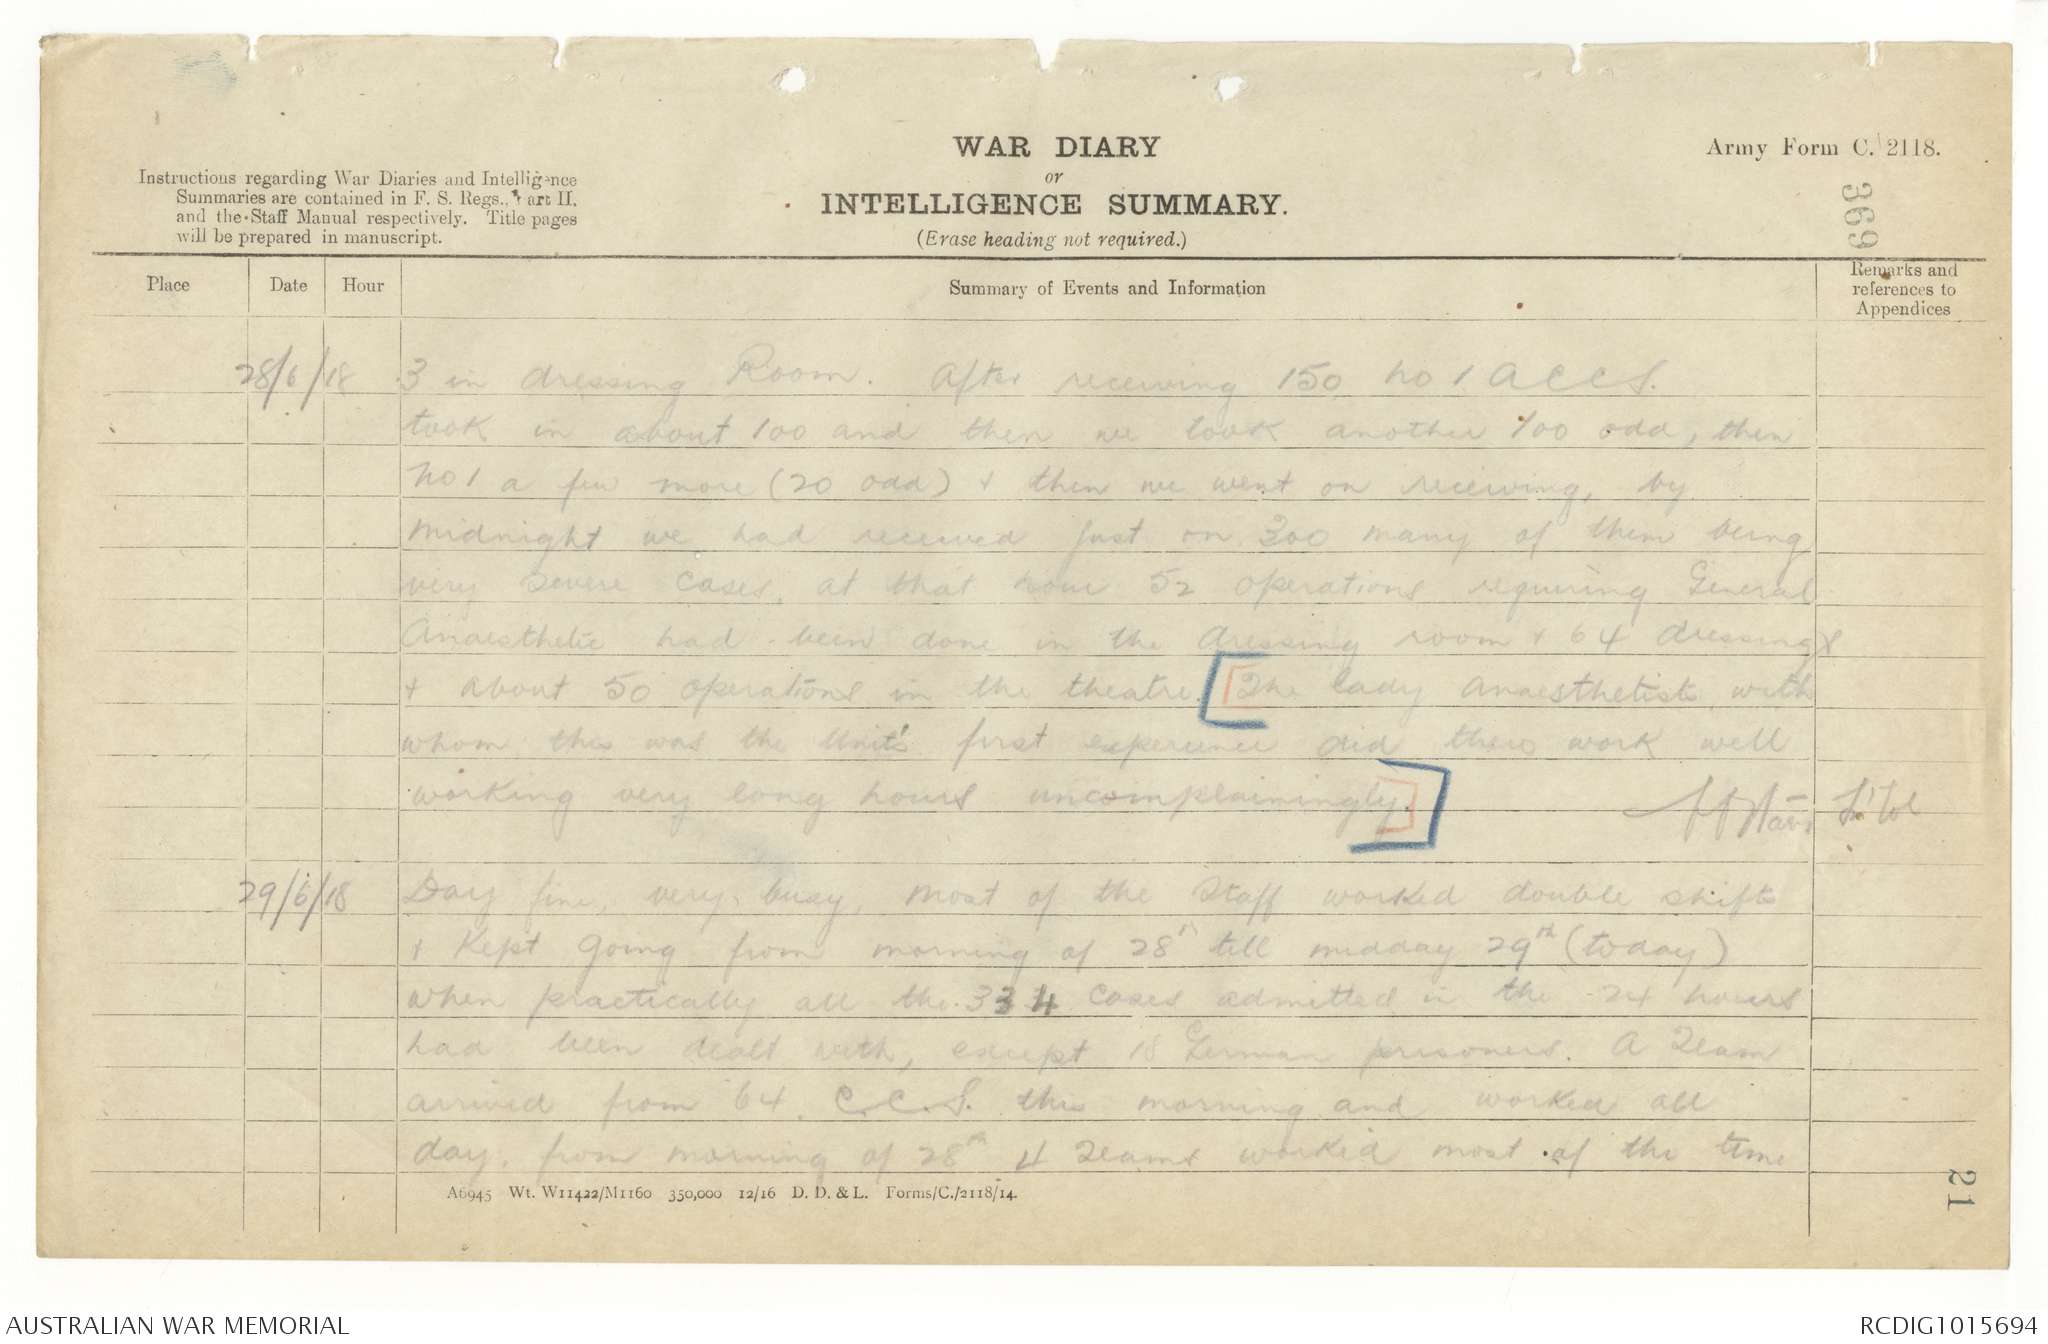 WAR DIARY
or
INTELLIGENCE SUMMARY.
(Erase heading not required.)
Army Form C. 2118.
369
Instructions regarding War Diaries and Intelligence
Summaries are contained in F. S. Regs., Part II.
and the Staff Manual respectively. Title pages
will be prepared in manuscript.
Place
Date
Hour
Summary of Events and Information
Remarks and
references to
Appendices
28/6/18 3 in dressing Room. After receiving 150 no 1 ACCS.
took in about 100 and then we took another 100 odd, then
no 1 a few more (20 odd) + then we went on receiving, by
midnight we had received just on 300 many of them being
very severe cases, at that hour 52 operations requiring General
Anaesthetic had been done in the dressing room + 64 dressings
+ about 50 operations in the theatre. [The lady anaesthetists with
whom this was the Unit's first experience did their work well
working very long hours uncomplainingly.]
Lt Col
29/6/18 Day fine, very busy, most of the staff worked double shifts
+ kept going from morning of 28th till midday 29th (today)
when practically all the 334 cases admitted in the 24 hours
had been dealt with, except 18 German prisoners. A Team
arrived from 64 C.C.S. this morning and worked all
day, from morning of 28th 4 Teams worked most of the time
A6945 Wt. W11422/M1160 350,000 12/16 D. D. & L. Forms/C./2118/14.
21
AUSTRALIAN WAR MEMORIAL
RCDIG1015694